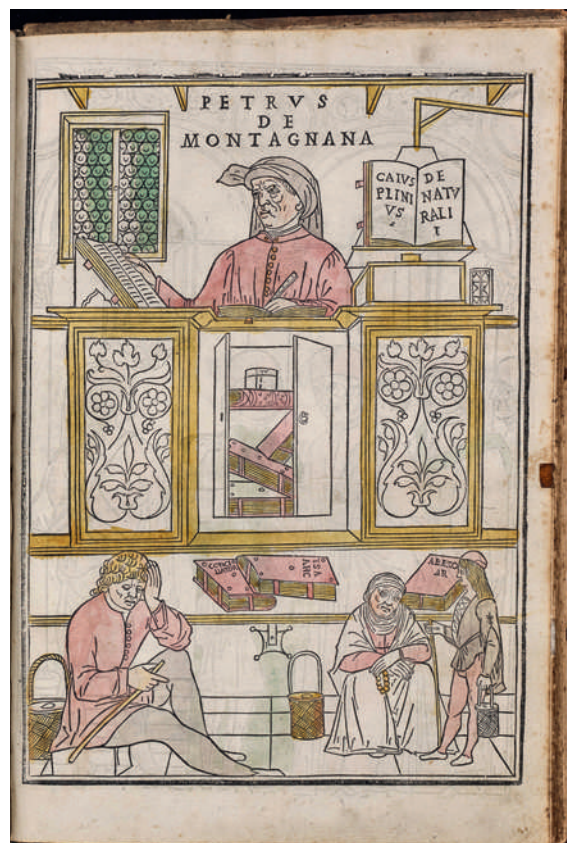 PETRVS
DE
MONTAGNANA
CAIVS
PLINI
VS
DE
NATV
RALI
CONCILI
ATOR
ISA
AHC